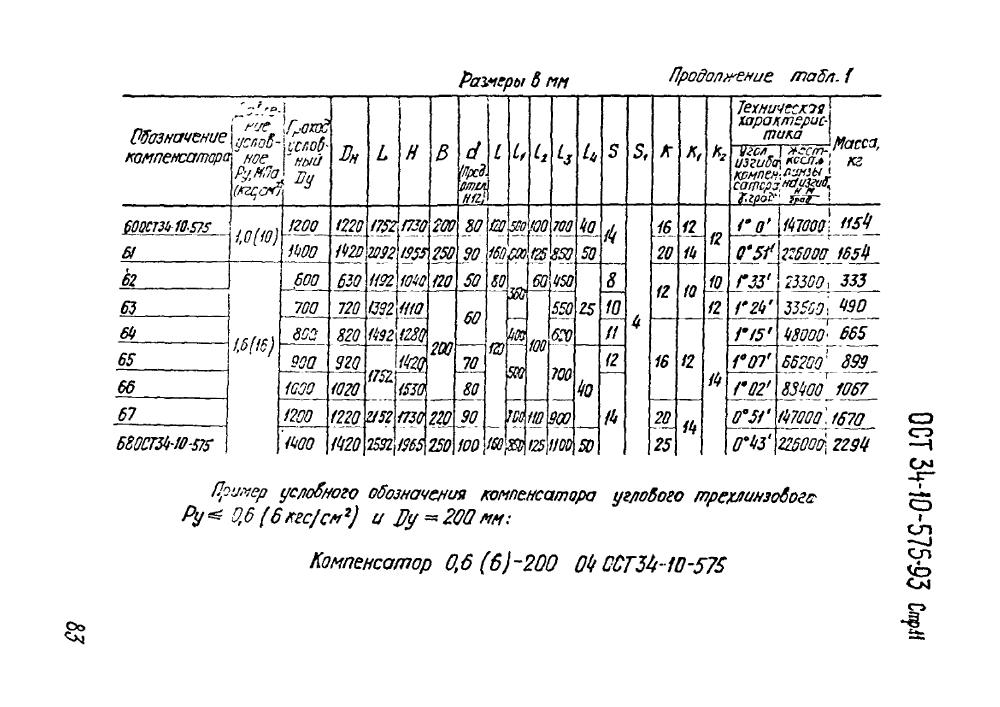 Размеры в мм
Продолжение табл. 1
Обозначение компенсатора | условное Ру, МПа (кгс/см²) | Проход условный Ду | Dн | L | H | B | d (Пред. откл. H12) | l | l₁ | l₂ | l₃ | l₄ | S | S₁ | K | K₁ | K₂ | Техническая характеристика | Масса, кг
Угол изгиба компенсатора, γ, град | жесткость линзы на изгиб, Н·м/град
60 ОСТ34-10-575 | 1,0 (10) | 1200 | 1220 | 1752 | 1730 | 200 | 80 | 120 | 500 | 100 | 700 | 40 | 14 | 4 | 16 | 12 | 12 | 1° 0' | 147000 | 1154
61 | 1400 | 1420 | 2092 | 1955 | 250 | 90 | 160 | 600 | 125 | 850 | 50 | 20 | 14 | 0° 51' | 226000 | 1654
62 | 1,6 (16) | 600 | 630 | 1192 | 1040 | 120 | 50 | 80 | 360 | 60 | 450 | 25 | 8 | 12 | 10 | 10 | 1° 33' | 23300 | 333
63 | 700 | 720 | 1392 | 1110 | 200 | 60 | 120 | 100 | 550 | 10 | 12 | 1° 24' | 33500 | 490
64 | 800 | 820 | 1492 | 1280 | 400 | 600 | 11 | 16 | 12 | 14 | 1° 15' | 48000 | 665
65 | 900 | 920 | 1752 | 1420 | 70 | 500 | 700 | 40 | 12 | 1° 07' | 66200 | 899
66 | 1000 | 1020 | 1530 | 80 | 14 | 1° 02' | 83400 | 1067
67 | 1200 | 1220 | 2152 | 1730 | 220 | 90 | 700 | 110 | 900 | 20 | 14 | 0° 51' | 147000 | 1670
68 ОСТ34-10-575 | 1400 | 1420 | 2592 | 1965 | 250 | 100 | 160 | 850 | 125 | 1100 | 50 | 25 | 0° 43' | 226000 | 2294
Пример условного обозначения компенсатора углового трехлинзового
Ру ≤ 0,6 (6 кгс/см²) и Ду = 200 мм:
Компенсатор 0,6 (6)-200 04 ОСТ34-10-575
ОСТ 34-10-575-93 Стр.11
83